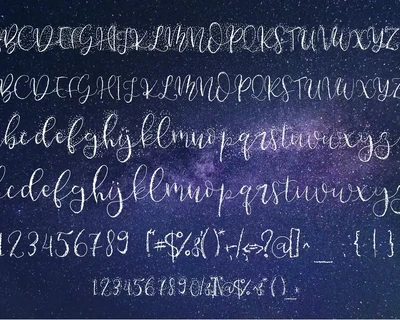 ABCDEFGHIJKLMNOPQRSTUVWXYZ
ABCDEFGHIJKLMNOPQRSTUVWXYZ
abcdefghijklmnopqrstuvwxyz
abcdefghijklmnopqrstuvwxyz
123456789
123456789